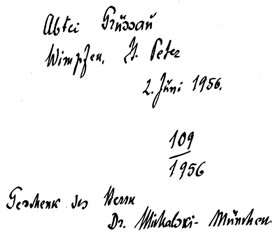 Abtei Grüssau
Wimpfen, St. Peter
2. Juni 1956.
109
1956
Geschenk des Herrn
Dr. Michalski - München